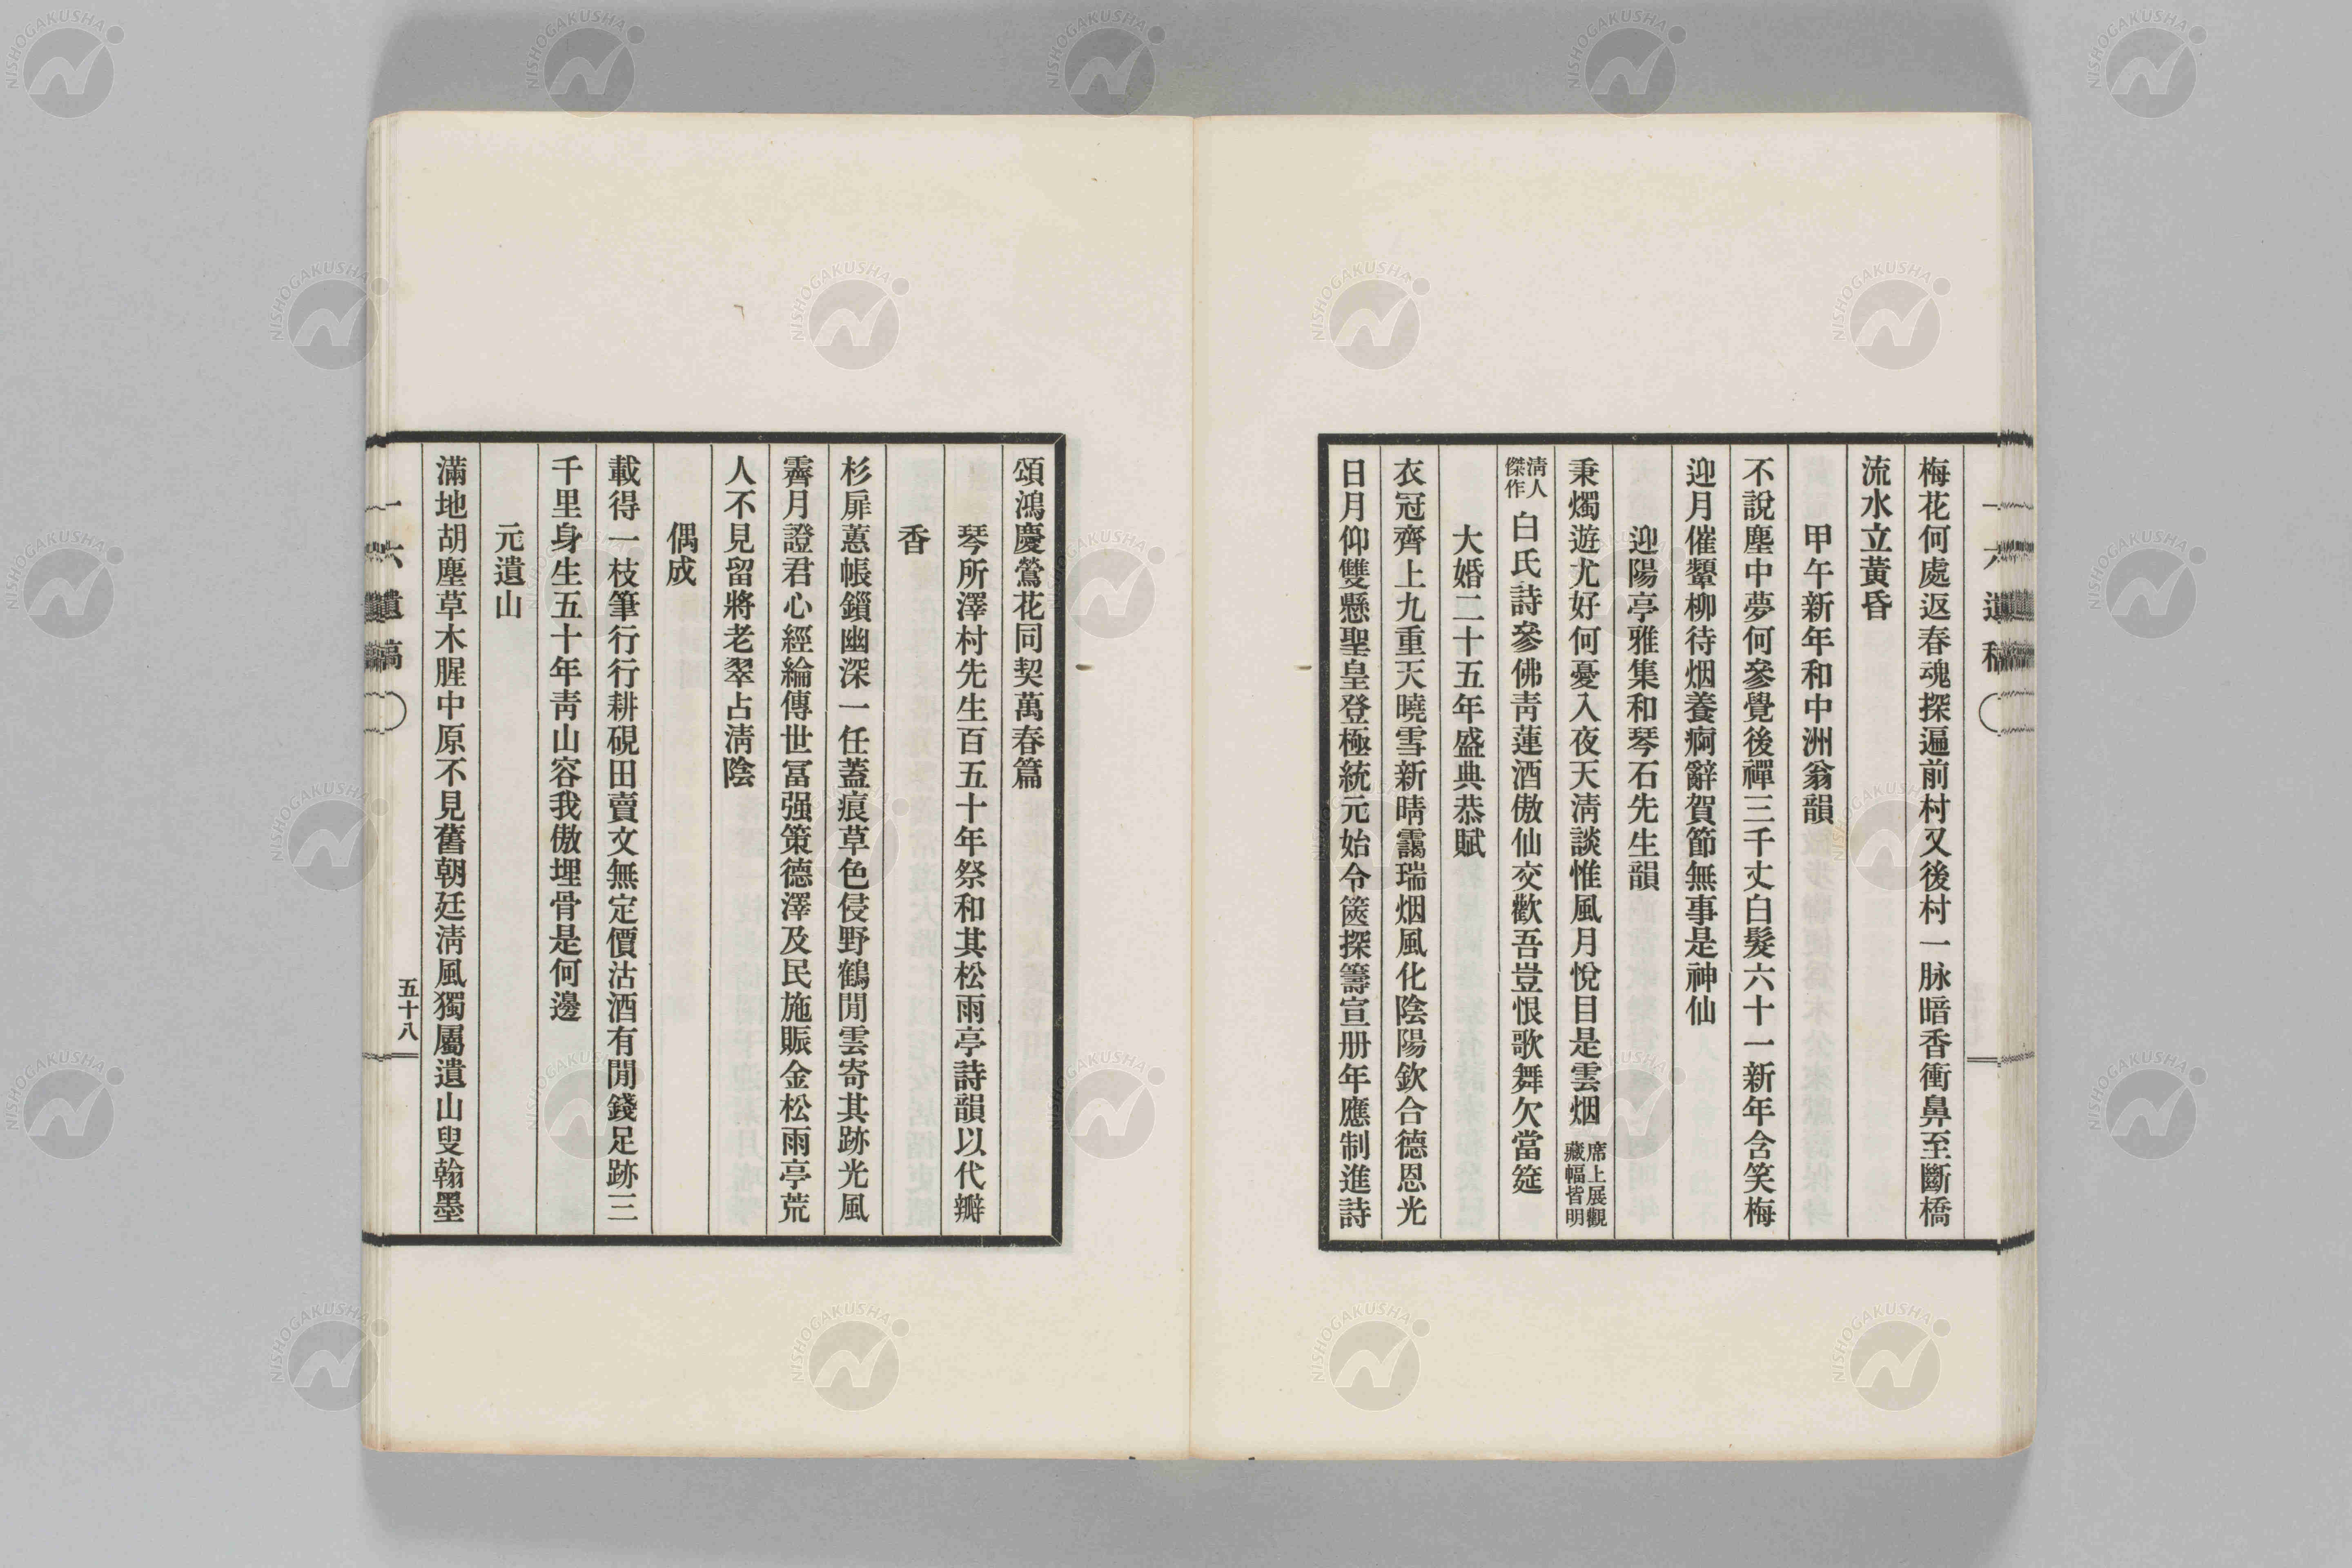 一六遺稿
梅花何處返春魂探遍前村又後村一脉暗香衝鼻至斷橋
流水立黃昏
甲午新年和中洲翁韻
不說塵中夢何參覺後禪三千丈白髮六十一新年含笑梅
迎月催顰柳待烟養痾辭賀節無事是神仙
迎陽亭雅集和琴石先生韻
秉燭遊尤好何憂入夜天淸談惟風月悅目是雲烟席上展觀藏幅皆明
淸人傑作白氏詩參佛靑蓮酒傲仙交歡吾豈恨歌舞欠當筵
大婚二十五年盛典恭賦
衣冠齊上九重天曉雪新晴靄瑞烟風化陰陽欽合德恩光
日月仰雙懸聖皇登極統元始令篋探籌宣册年應制進詩
頌鴻慶鶯花同契萬春篇
琴所澤村先生百五十年祭和其松雨亭詩韻以代瓣
香
杉扉蕙帳鎖幽深一任蓋痕草色侵野鶴閒雲寄其跡光風
霽月證君心經綸傳世冨强策德澤及民施賑金松雨亭荒
人不見留將老翠占淸陰
偶成
載得一枝筆行行耕硯田賣文無定價沽酒有閒錢足跡三
千里身生五十年靑山容我傲埋骨是何邊
元遺山
滿地胡塵草木腥中原不見舊朝廷淸風獨屬遺山叟翰墨
一六遺稿
五十八
NISHOGAKUSHA